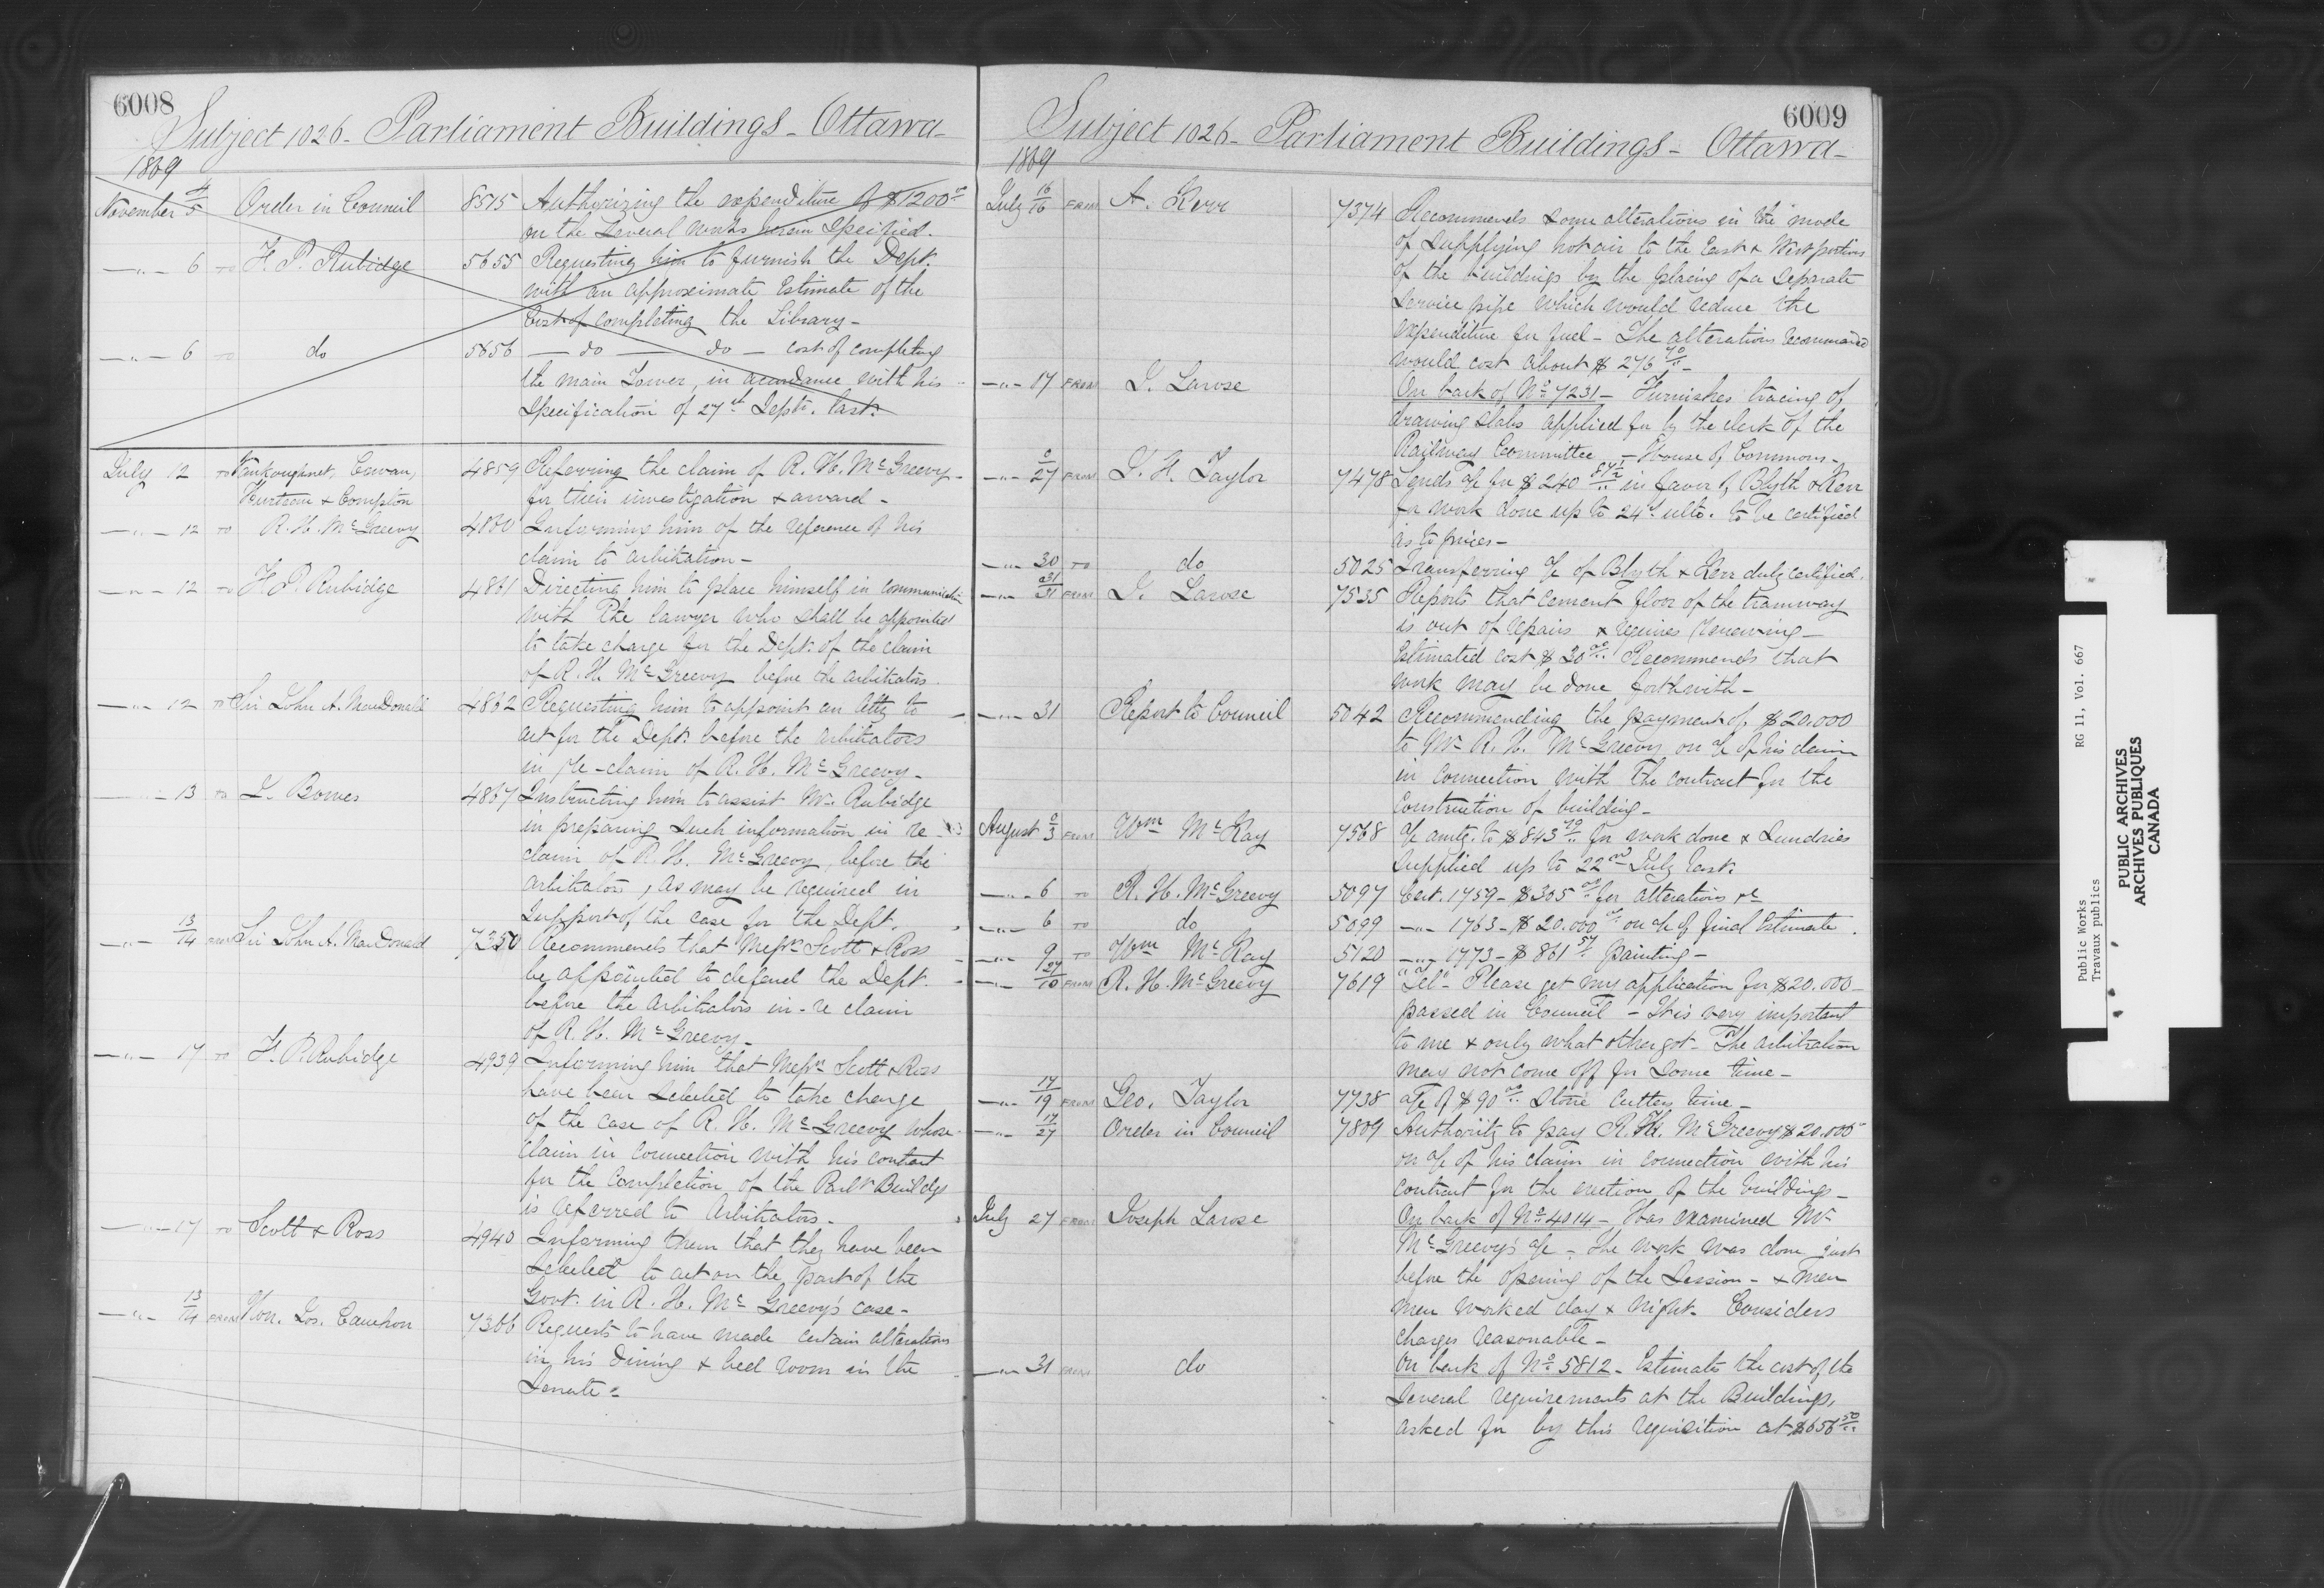 6008
Subject 1026 - Parliament Buildings - Ottawa -
1869
November 4/5 Order in Council 8515 Authorizing the expenditure of $1200.00
on the several works herein specified.
-"- 6 TO F. P. Rubidge 5655 Requesting him to furnish the Dept.
with an approximate Estimate of the
Cost of completing the Library -
-"- 6 TO do 5656 - do - do - cost of completing
the main Tower, in accordance with his
Specification of 27th Septr. last.
July 12 TO Vankoughnet, Cowan, 4859 Referring the claim of R. H. McGreevy
Hurteau & Compton for their investigation & award -
-"- 12 TO R. H. McGreevy 4860 Informing him of the reference of his
claim to arbitration -
-"- 12 TO F. P. Rubidge 4861 Directing him to place himself in communication
with the lawyer who shall be appointed
to take charge for the Dept. of the claim
of R. H. McGreevy before the arbitrators.
-"- 12 TO Sir John A. MacDonald 4862 Requesting him to appoint an Atty to
act for the Dept. before the arbitrators
in re-claim of R. H. McGreevy -
-"- 13 TO J. Bowes 4867 Instructing him to assist Mr. Rubidge
in preparing such information in re
claim of R. H. McGreevy, before the
arbitrators, as may be required in
support of the case for the Dept.
-"- 13/14 FROM Sir John A. MacDonald 7350 Recommends that Messrs Scott & Ross
be appointed to defend the Dept.
before the arbitrators in-re claim
of R. H. McGreevy -
-"- 17 TO F. P. Rubidge 4939 Informing him that Messrs Scott & Ross
have been selected to take charge
of the case of R. H. McGreevy whose
claim in connection with his contract
for the completion of the Parlt Buildgs
is referred to Arbitrators -
-"- 17 TO Scott & Ross 4940 Informing them that they have been
selected to act on the part of the
Govt. in R. H. McGreevy's case -
-"- 13/14 FROM Hon. Jos. Cauchon 7366 Requests to have made certain alterations
in his dining & bed room in the
Senate -
6009
Subject 1026 - Parliament Buildings - Ottawa -
1869
July 16/16 FROM A. Kerr 7374 Recommends some alterations in the mode
of supplying hot air to the East & West portions
of the buildings by the placing of a separate
service pipe which would reduce the
expenditure for fuel - The alterations recommended
would cost about $276.70 -
-"- 17 FROM J. Larose On back of No. 7231 - Furnishes tracing of
drawing slabs applied for by the clerk of the
Railway Committee - House of Commons -
-"- 27 FROM J. H. Taylor 7478 Sends a/c for $240 87½ in favor of Blyth & Kerr
for work done up to 24th ulto. to be certified
as to prices -
-"- 30 TO do 5025 Transferring a/c of Blyth & Kerr duly certified.
-"- 31/31 FROM J. Larose 7535 Reports that cement floor of the tramway
is out of repairs & requires renewing -
Estimated cost $30.00 Recommends that
work may be done forthwith -
-"- 31 Report to Council 5042 Recommending the payment of $20.000
to Mr. R. H. McGreevy on a/c of his claim
in connection with the contract for the
construction of building -
August 2/3 FROM Wm McKay 7568 a/c amtg. to $843.70 for work done & sundries
supplied up to 22nd July last.
-"- 6 TO R. H. McGreevy 5097 Cert. 1759 - $305.00 for alterations &c
-"- 6 TO do 5099 -"- 1763 - $20.000.00 on a/c of final Estimate.
-"- 9 TO Wm McKay 5120 -"- 1773 - $861.57 painting -
-"- 27/10 FROM R. H. McGreevy 7619 "Tel" - Please get my application for $20.000 -
passed in Council - It is very important
to me & only what other got - The arbitration
may not come off for some time -
-"- 17/19 FROM Geo. Taylor 7738 a/c of $90.00 Stone Cutters time -
-"- 17/27 Order in Council 7809 Authority to pay R. H. McGreevy $20.000
on a/c of his claim in connection with his
contract for the erection of the buildings -
July 27 FROM Joseph Larose On back of No. 4014 - Has examined Mr.
McGreevy's a/c - The work was done just
before the opening of the Session - & men
men worked day & night - Considers
charges reasonable -
-"- 31 FROM do On back of No. 5812 - Estimates the cost of the
several requirements at the Buildings,
asked for by this requisition at $656.50
Public Works RG 11, Vol. 667
Travaux publics
PUBLIC ARCHIVES
ARCHIVES PUBLIQUES
CANADA